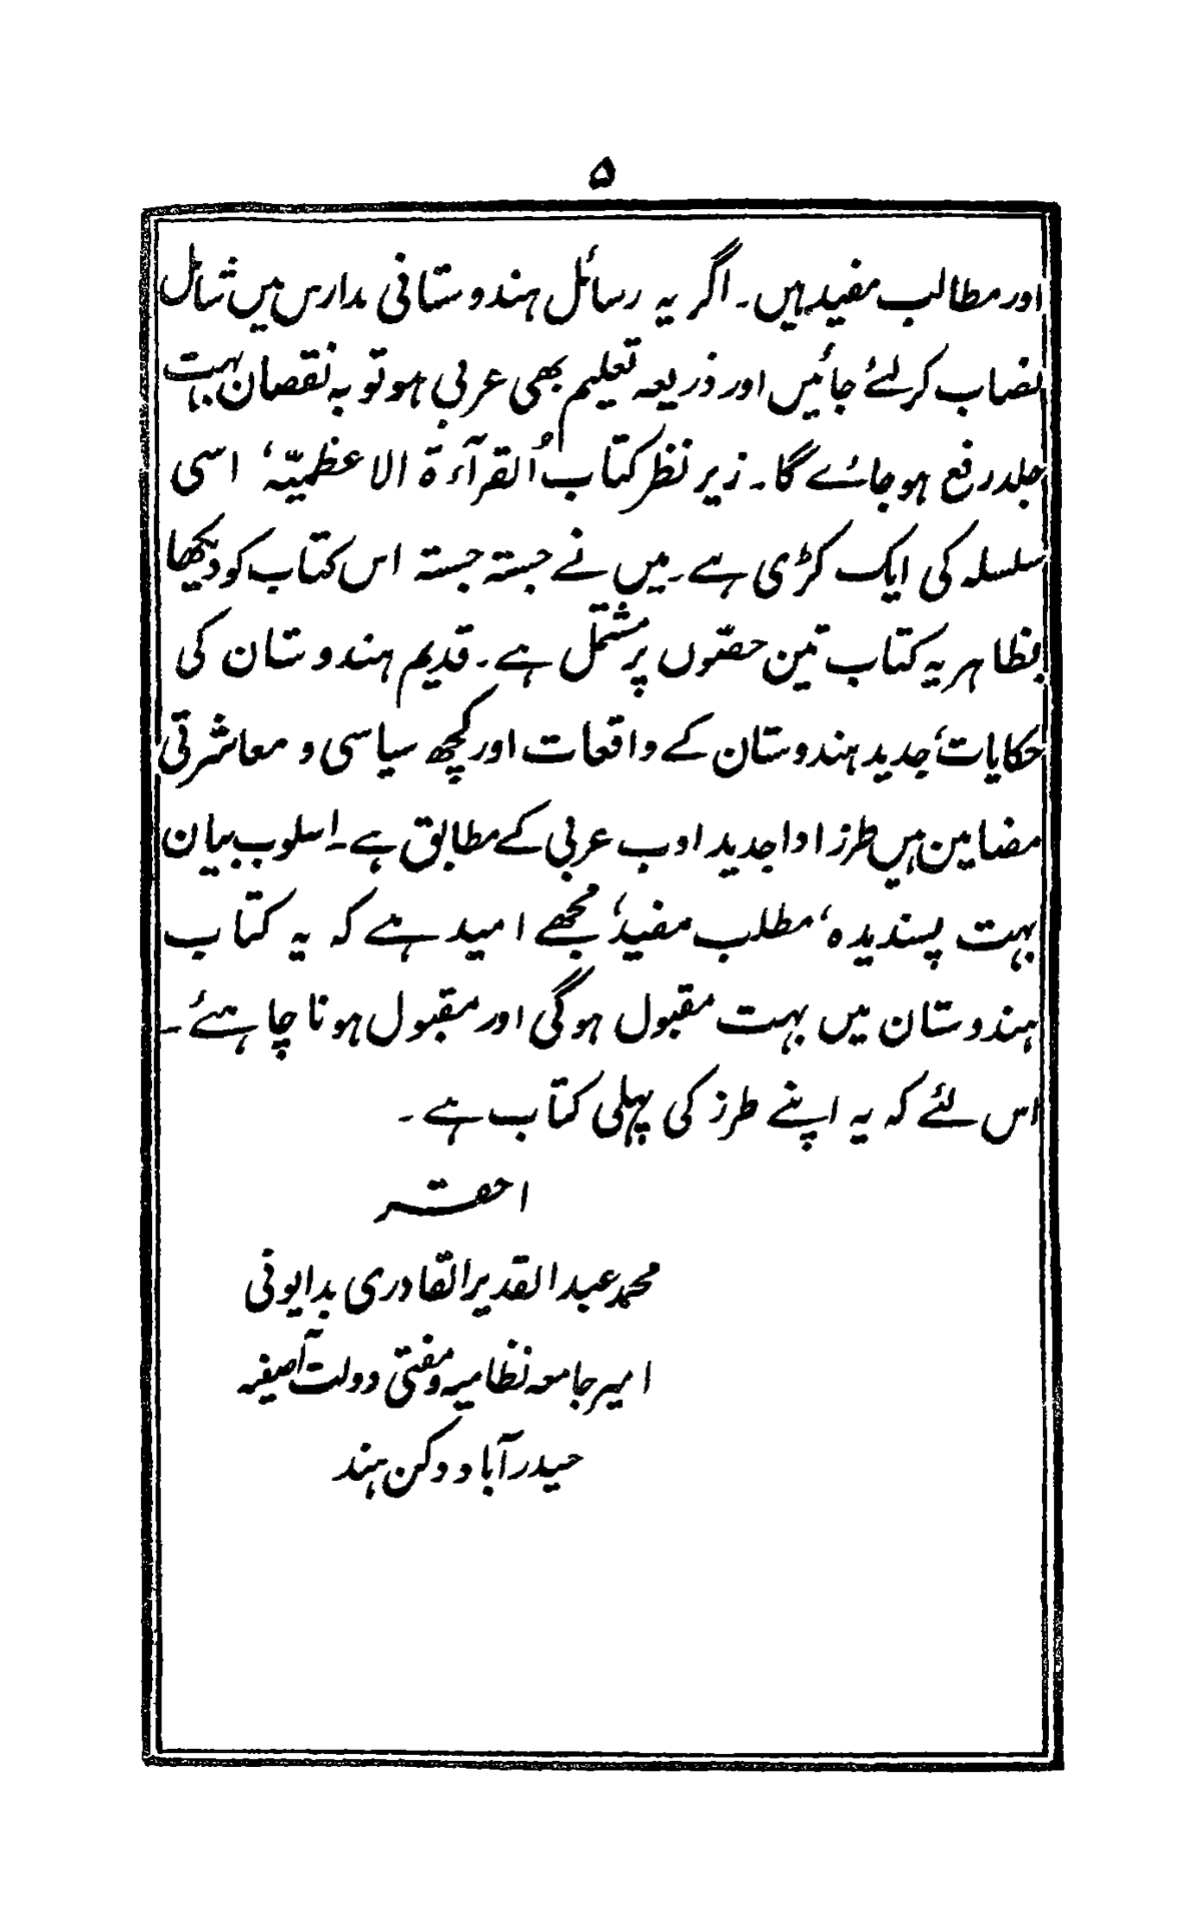 ۵
اور مطالب مفید ہیں۔ اگر یہ رسائل ہندوستانی مدارس میں شامل
نصاب کر لئے جائیں اور ذریعہ تعلیم بھی عربی ہو تو یہ نقصان بہت
جلد رفع ہو جائے گا۔ زیر نظر کتاب ُالقرآءۃ الاعظمیّہ‘ اسی
سلسلہ کی ایک کڑی ہے۔ میں نے جستہ جستہ اس کتاب کو دیکھا
بظاہر یہ کتاب تین حصّوں پر مشتمل ہے۔ قدیم ہندوستان کی
حکایات‘ جدید ہندوستان کے واقعات اور کچھ سیاسی و معاشرتی
مضامین ہیں طرز ادا جدید ادب عربی کے مطابق ہے۔ اسلوب بیان
بہت پسندیدہ‘ مطلب مفید‘ مجھے امید ہے کہ یہ کتاب
ہندوستان میں بہت مقبول ہوگی اور مقبول ہونا چاہئے۔
اس لئے کہ یہ اپنے طرز کی پہلی کتاب ہے۔
احقر
محمد عبد القدیر القادری بدایونی
امیر جامعہ نظامیہ و مفتی دولت آصفیہ
حیدرآباد دکن ہند